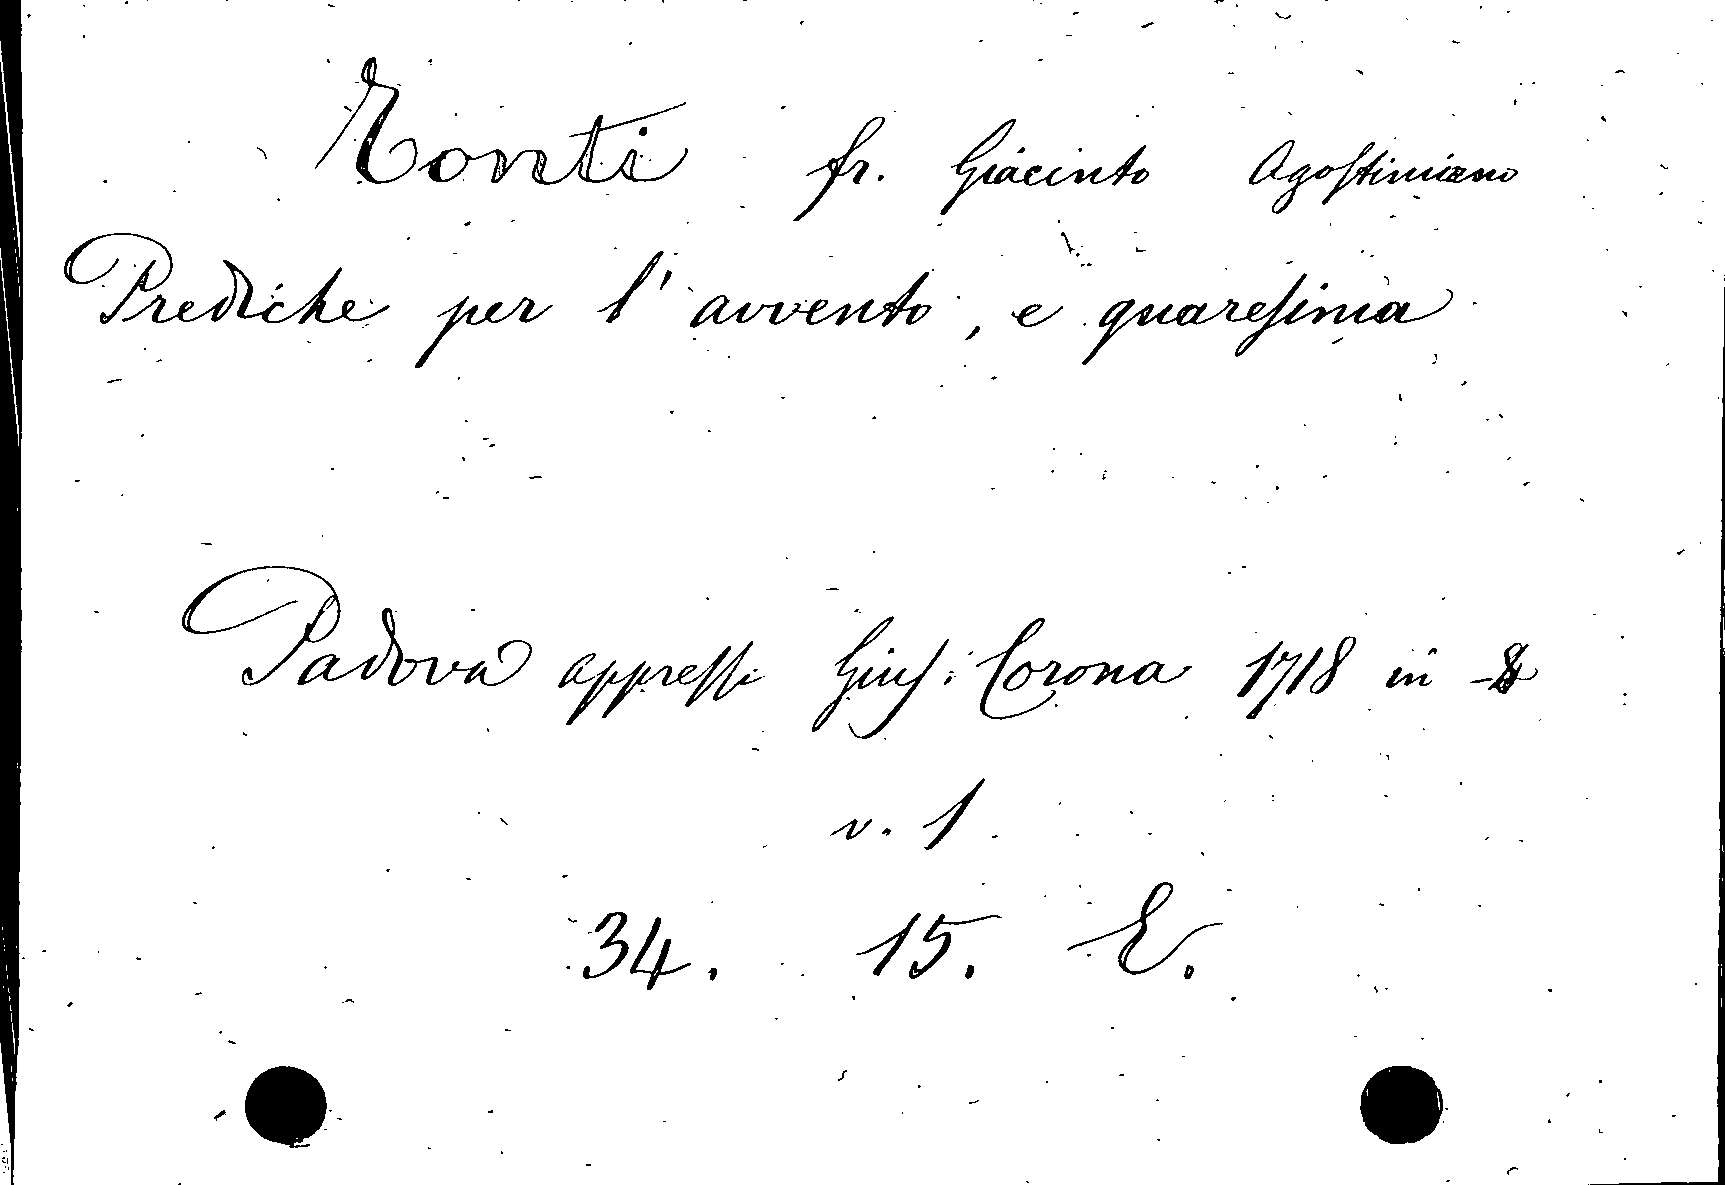 Tonti fr. Giacinto Agostiniano
Prediche per l'avvento, e quaresima
Padova appresso Gius: Corona 1718 in 8
v. 1
34. 15. E.